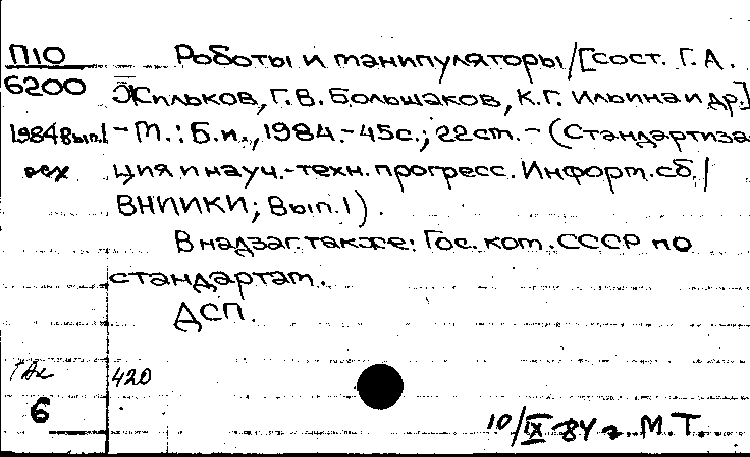 П10 Роботы и манипуляторы / [сост. Г.А.
6200 Жильков, Г.В. Большаков, К.Г. Ильина и др.]
1984 Вып.1 – М.: Б.и., 1984. – 45с.; 22см. – (Стандартиза
ция и науч.-техн. прогресс. Информ. сб. /
ВНИИКИ; Вып.1).
В надзаг. также: Гос. ком. СССР по
стандартам.
ДСП.
420
6
10/IX-84 г. М.Т.